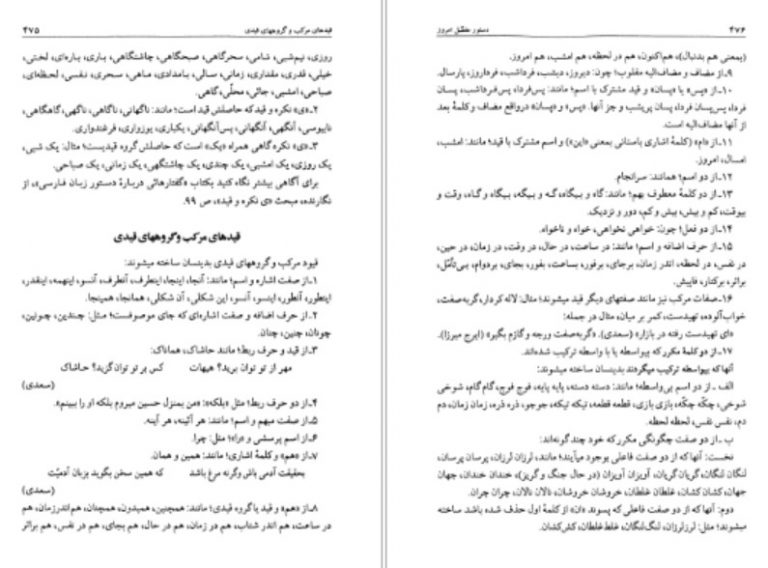 قیدهای مرکب و گروههای قیدی ۴۷۵
روزی، نیم‌شبی، شامی، سحرگاهی، صبحگاهی، چاشتگاهی، باری، پاره‌ای، لختی،
خیلی، قدری، مقداری، زمانی، سالی، بامدادی، ماهی، سحری، نفسی، لحظه‌ای،
صباحی، امشبی، جائی، محلّی، گاهی.
۲ـ «ی» نکره و قید که حاصلش قید است؛ مانند: ناگهانی، ناگاهی، ناگهی، گاهگاهی،
نابیوسی، آنگهی، آنگهانی، پس‌آنگهانی، یکباری، یوزواری، فرغندواری.
۳ـ «ی» نکره گاهی همراه «یک» است که حاصلش گروه قیدیست؛ مثال: یک شبی،
یک روزی، یک امشبی، یک چندی، یک چاشتگهی، یک زمانی، یک صباحی.
برای آگاهی بیشتر نگاه کنید بکتاب «گفتارهائی دربارهٔ دستور زبان فارسی»، از
نگارنده، مبحث «ی نکره و قید»، ص ۹۹.
قیدهای مرکب وگروههای قیدی
قیود مرکب و گروههای قیدی بدینسان ساخته میشوند:
۱ـ از صفت اشاره و اسم؛ مانند: آنجا، اینجا، اینطرف، آنطرف، آنسو، اینهمه، اینقدر،
اینطور، آنطور، اینسو، آنسو، این شکلی، آن شکلی، همانجا، همینجا.
۲ـ از حرف اضافه و صفت اشاره‌ای که جای موصوفست؛ مثل: چندین، چونین،
چونان، چنین، چنان.
۳ـ از قید و حرف ربط؛ مانند حاشاک، هماناک:
مهر از تو توان برید؟ هیهات کس بر تو توان گزید؟ حاشاک
(سعدی)
۴ـ از دو حرف ربط؛ مثل «بلکه»: «من بمنزل حسین میروم بلکه او را ببینم».
۵ـ از صفت مبهم و اسم؛ مانند: هر آئینه، هر آینه.
۶ـ از اسم پرسشی و «را»؛ مثل: چرا.
۷ـ از «هم» و کلمهٔ اشاری؛ مانند: همین و همان.
بحقیقت آدمی باش وگرنه مرغ باشد که همین سخن بگوید بزبان آدمیّت
(سعدی)
۸ـ از «هم» و قید یا گروه قیدی؛ مانند: همچنین، همیدون، همچنان، هم اندرزمان، هم
در ساعت، هم اندر شتاب، هم در زمان، هم در حال، هم بجای، هم در نفس، هم براثر
۴۷۶ دستور مفصّل امروز
(بمعنی هم بدنبال)، هم‌اکنون، هم در لحظه، هم امشب، هم امروز.
۹ـ از مضاف و مضاف‌الیه مقلوب؛ چون: دیروز، دیشب، فرداشب، فرداروز، پارسال.
۱۰ـ از «پس» یا «پسان» و قید مشترک با اسم؛ مانند: پس‌فردا، پس‌فرداشب، پسان
فردا، پس‌پسان فردا، پسان پریشب و جز آنها. «پس» و «پسان» درواقع مضاف و کلمهٔ بعد
از آنها مضاف‌الیه است.
۱۱ـ از «ام» (کلمهٔ اشاری باستانی بمعنی «این») و اسم مشترک با قید؛ مانند: امشب،
امسال، امروز.
۱۲ـ از دو اسم؛ همانند: سرانجام.
۱۳ـ از دو کلمهٔ معطوف بهم؛ مانند: گاه و بیگاه، گه و بیگه، بیگاه و گاه، وقت و
بیوقت، کم و بیش، بیش و کم، دور و نزدیک.
۱۴ـ از دو فعل؛ چون: خواهی نخواهی، خواه و ناخواه.
۱۵ـ از حرف اضافه و اسم؛ مانند: در ساعت، در حال، در وقت، در زمان، در حین،
در نفس، در لحظه، اندر زمان، برجای، برفور، بساعت، بفور، بجای، بردوام، بی‌تأمّل،
براثر، برکنار، فاپیش.
۱۶ـ صفات مرکب نیز مانند صفتهای دیگر قید میشوند؛ مثل: لاله کردار، گربه‌صفت،
خواب‌آلوده، تهیدست، کمر بر میان، مثال در جمله:
«ای تهیدست رفته در بازار» (سعدی). «گربه‌صفت ورجه و گازم بگیر» (ایرج میرزا).
۱۷ـ از دو کلمهٔ مکرر که بیواسطه یا با واسطه ترکیب شده‌اند.
آنها که بیواسطه ترکیب میگردند بدینسان ساخته میشوند:
الف ـ از دو اسم بی‌واسطه؛ مانند: دسته دسته، پایه پایه، فوج فوج، گام گام، شوخی
شوخی، چکّه چکّه، بازی بازی، قطعه قطعه، تیکه تیکه، جوجو، ذره ذره، زمان زمان، دم
دم، نفس نفس، لحظه لحظه.
ب ـ از دو صفت چگونگی مکرر که خود چند گونه‌اند:
نخست: آنها که از دو صفت فاعلی بوجود میآیند؛ مانند، لرزان لرزان، پرسان پرسان،
لنگان لنگان، گریان گریان، آویزان آویزان (در حال جنگ و گریز)، خندان خندان، جهان
جهان، کشان کشان، غلطان غلطان، خروشان خروشان، نالان نالان، چران چران.
دوم: آنها که از دو صفت فاعلی که پسوند «ان» از کلمهٔ اول حذف شده باشد ساخته
میشوند؛ مثل: لرزلرزان، لنگ‌لنگان، غلط‌غلطان، کش‌کشان.